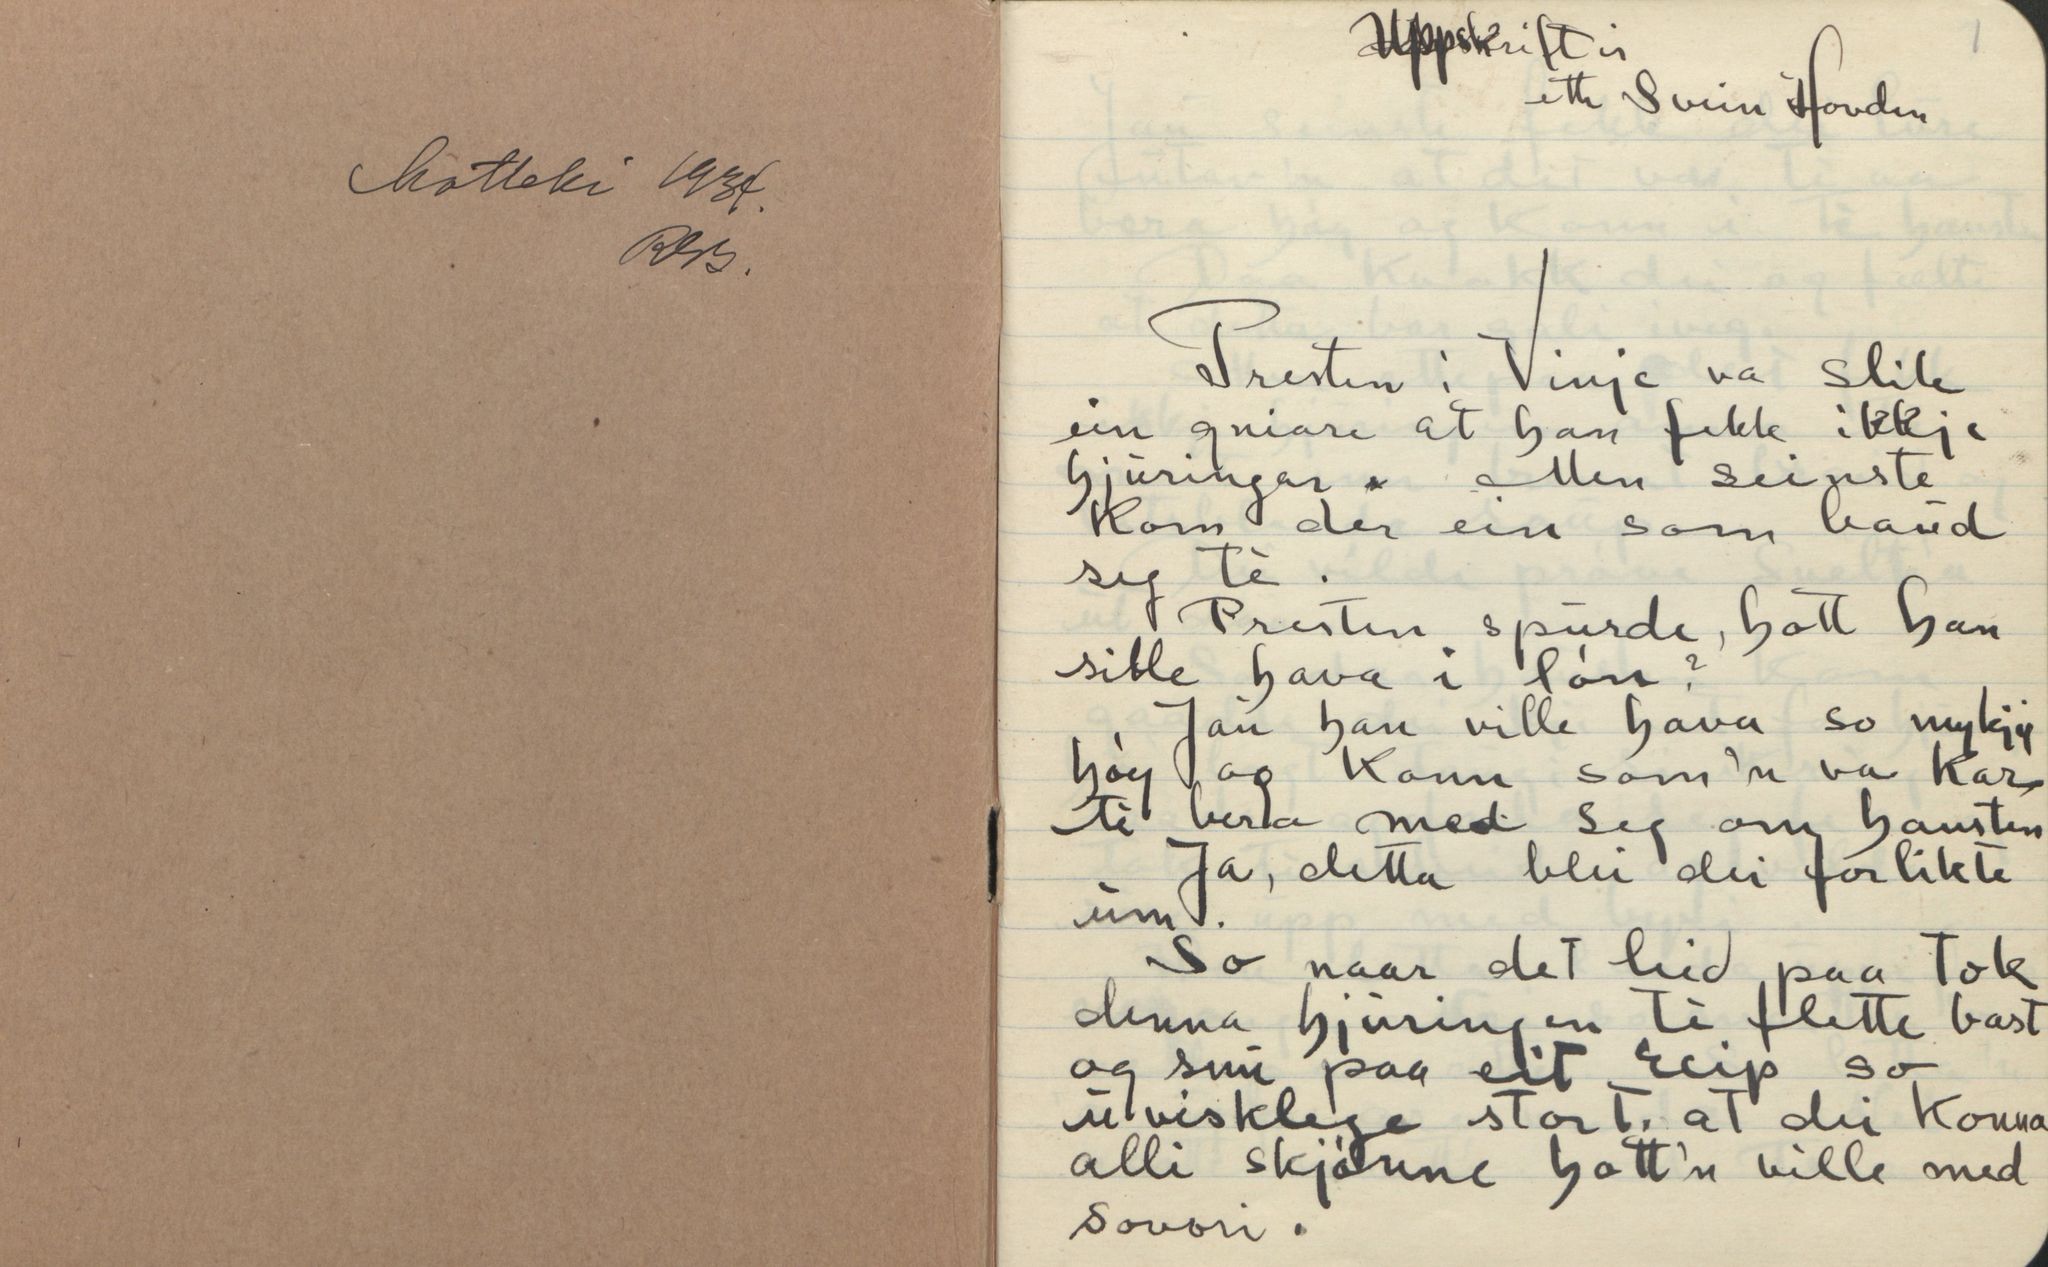 Motteki 1934.
RB.
1
Uppskriftir
ette Svein Hovden
Presten i Vinje va slik
ein gniare at han fekk ikkje
hjuringar. Men seinste
kom der ein som baud
seg tè.
Presten spurde, hott han
sille hava i lón?
Jau han ville hava so mykjy
hóy og konn som'n va kar
tè bera med seg om hausten
Ja, detta blei dei forlikte
um.
So naar det leid paa tok
denna hjuringen tè flette bast
og snu paa eit reip so
uvisklege stort, at dei konna
alli skjónne hott'n ville med
sovori.